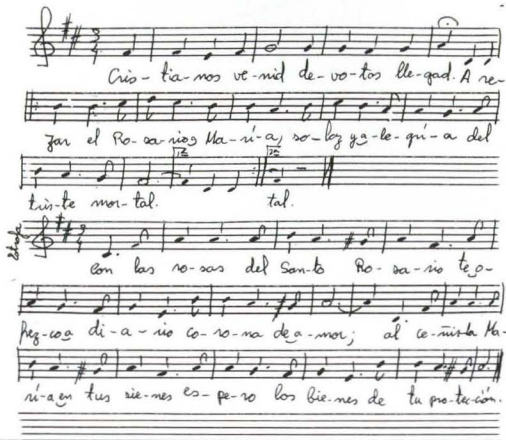 Cris-tia-nos ve-nid de-vo-tos lle-gad. A re-
zar el Ro-sa-rio a Ma-rí-a, so-laz y a-le-grí-a del
1ª 2ª
tris-te mor-tal. tal.
Estrofa
Con las ro-sas del San-to Ro-sa-rio te o-
frez-co a di-a-rio co-ro-na de a-mor; al ce-ñirla Ma-
rí-a en tus sie-nes es-pe-ro los bie-nes de tu pro-tec-ción.